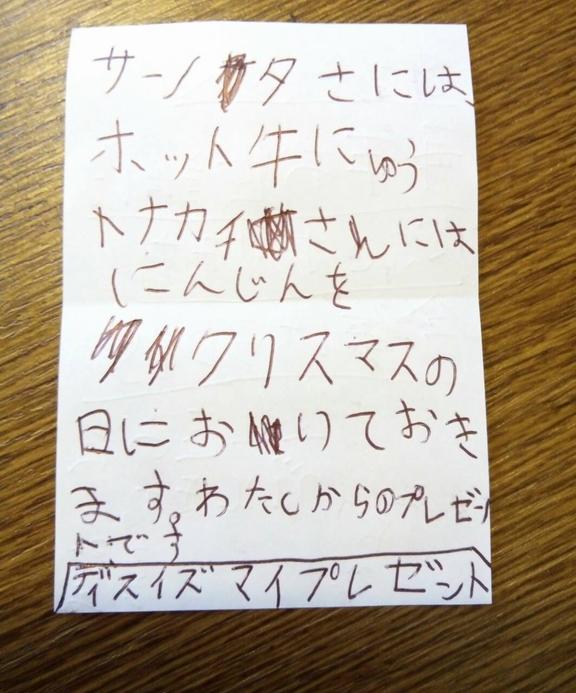 サーノタさには、
ホット牛にゅう
トナカチさんには
にんじんを
クリスマスの
日においておき
ます。わたしからのプレゼン
トです
ディスイズマイプレゼント